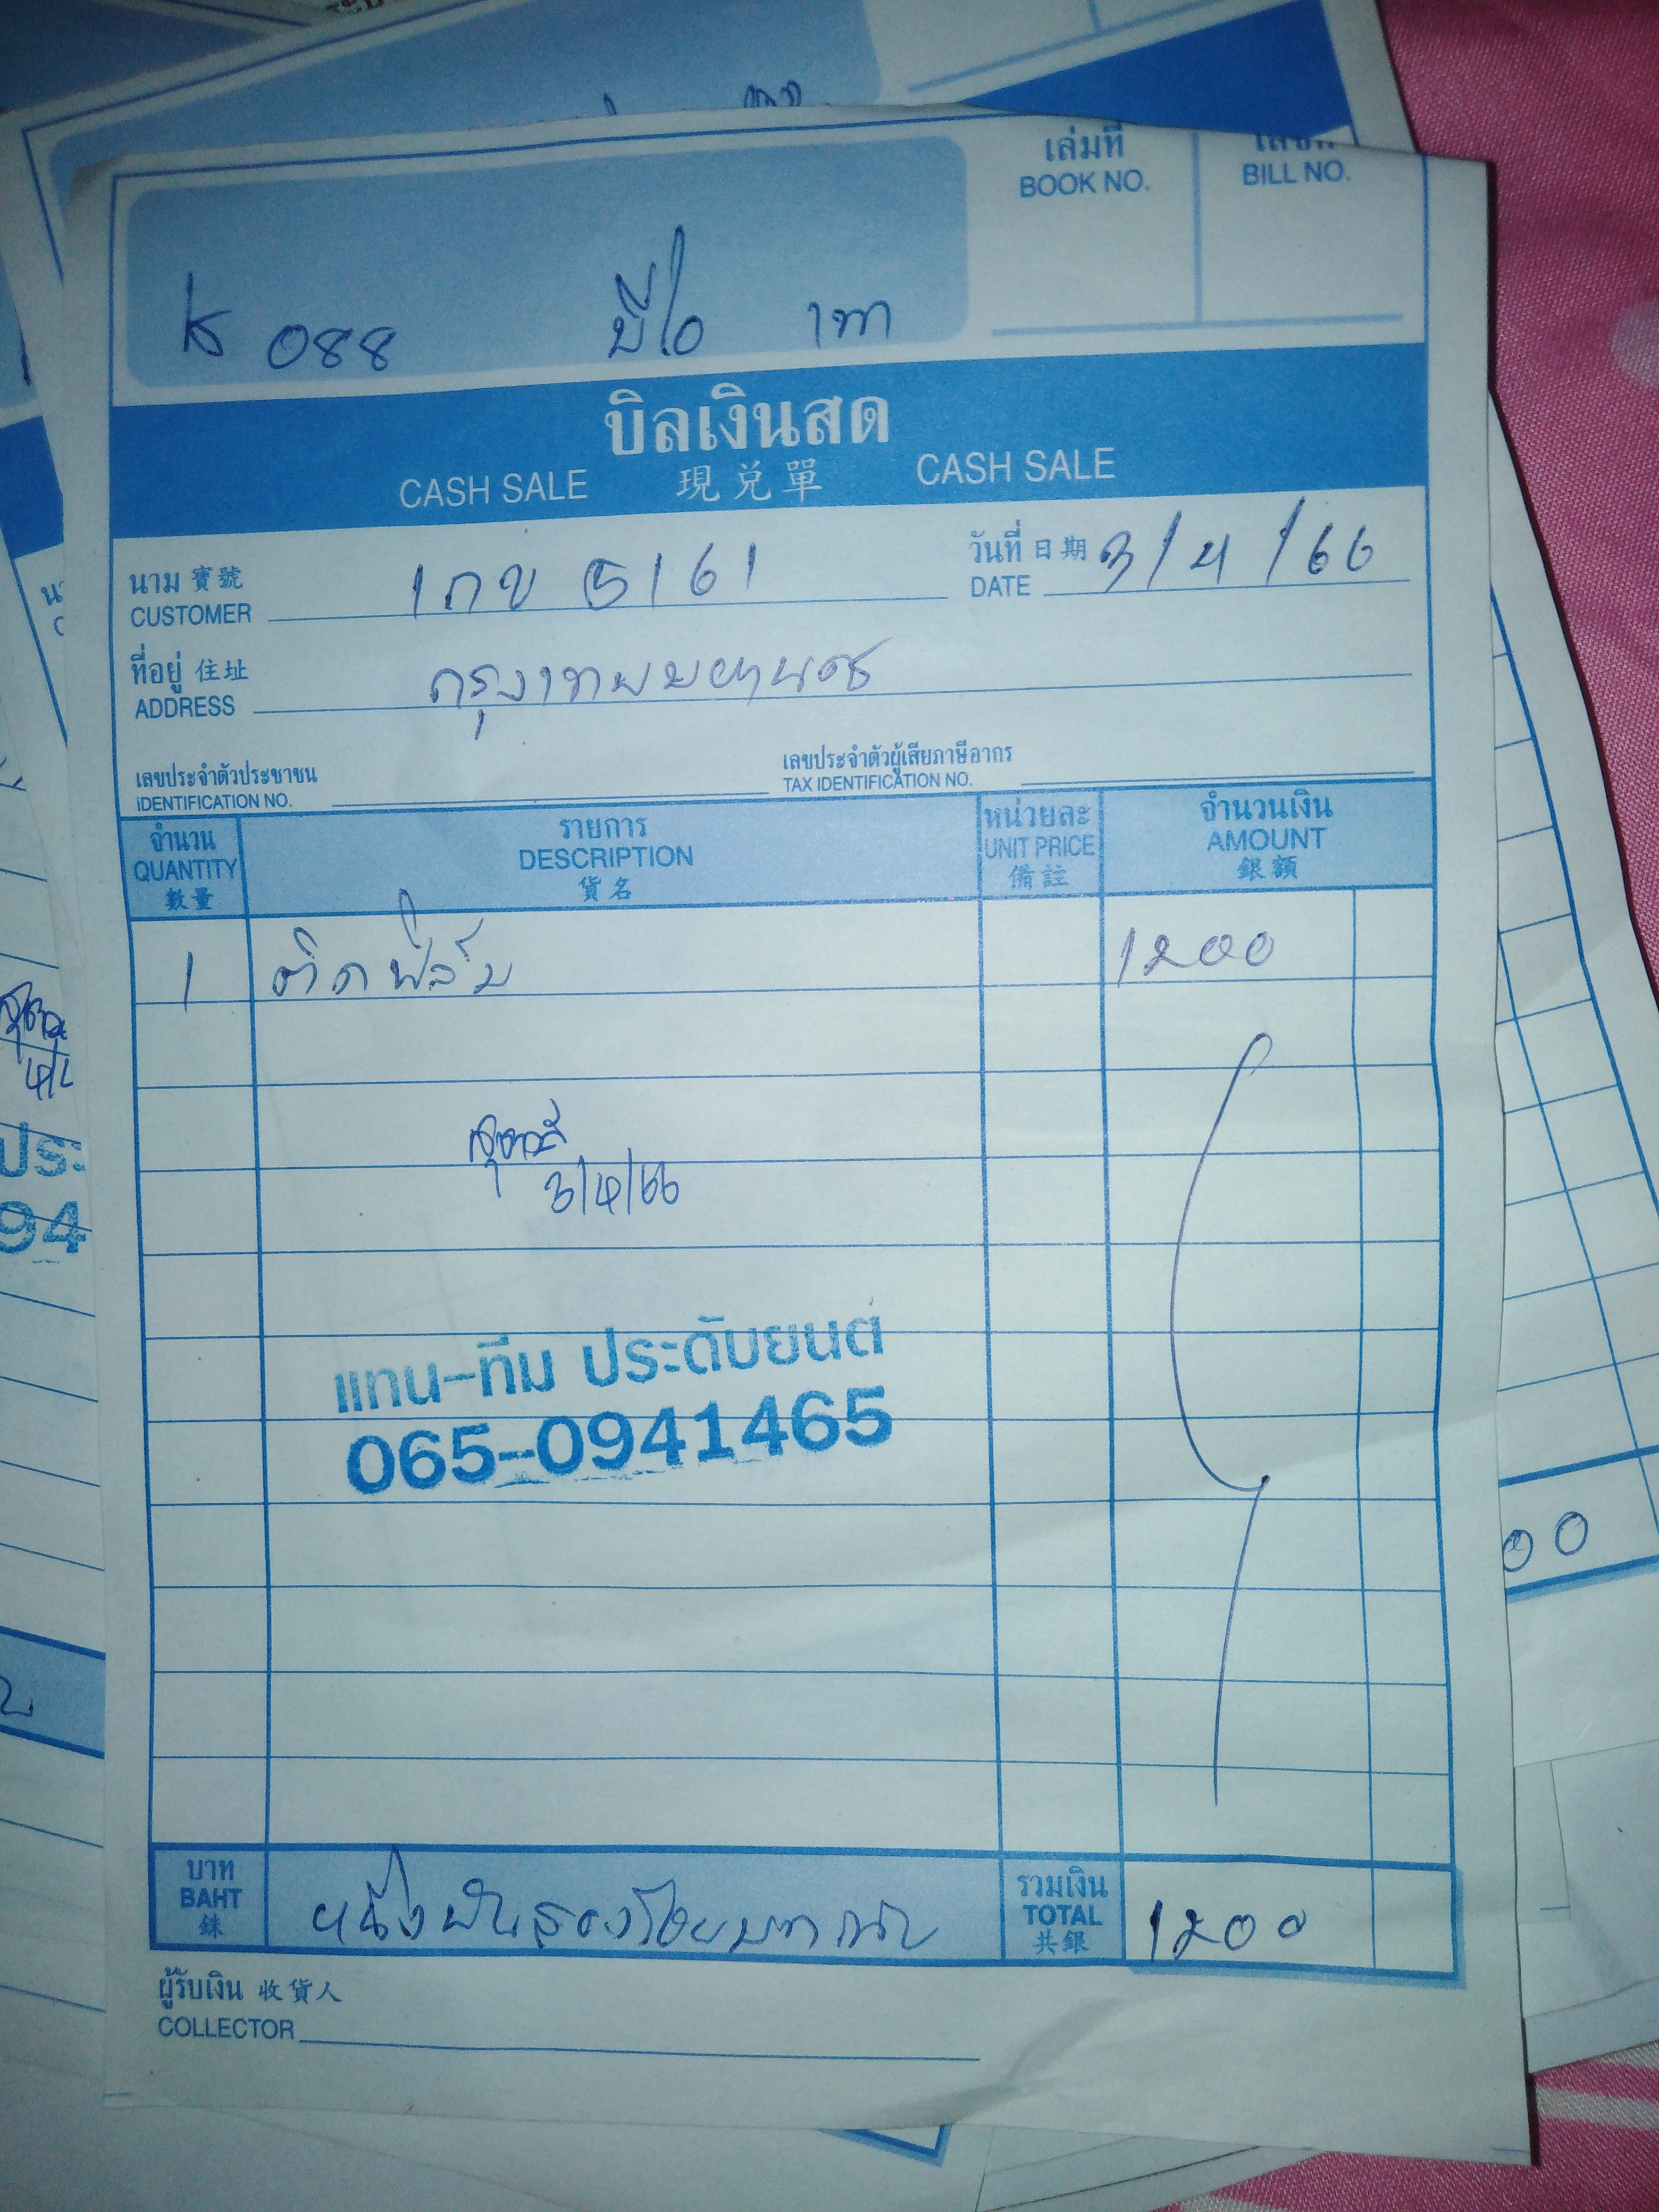 เล่มที่
BOOK NO.
BILL NO.
088 บีโอ เทา
บิลเงินสด
CASH SALE 現兌單 CASH SALE
นาม 寶號
CUSTOMER
1กข 5161
วันที่ 日期
DATE
3/4/66
ที่อยู่ 住址
ADDRESS
กรุงเทพมหานคร
เลขประจำตัวประชาชน
IDENTIFICATION NO.
เลขประจำตัวผู้เสียภาษีอากร
TAX IDENTIFICATION NO.
จำนวน
QUANTITY
數量
รายการ
DESCRIPTION
貨名
หน่วยละ
UNIT PRICE
備註
จำนวนเงิน
AMOUNT
銀額
1 ติดฟิล์ม 1200
3/4/66
แทน-ทีม ประดับยนต์
065-0941465
บาท
BAHT
銖
หนึ่งพันสองร้อยบาทถ้วน
รวมเงิน
TOTAL
共銀
1200
ผู้รับเงิน 收貨人
COLLECTOR
ประ
94
00